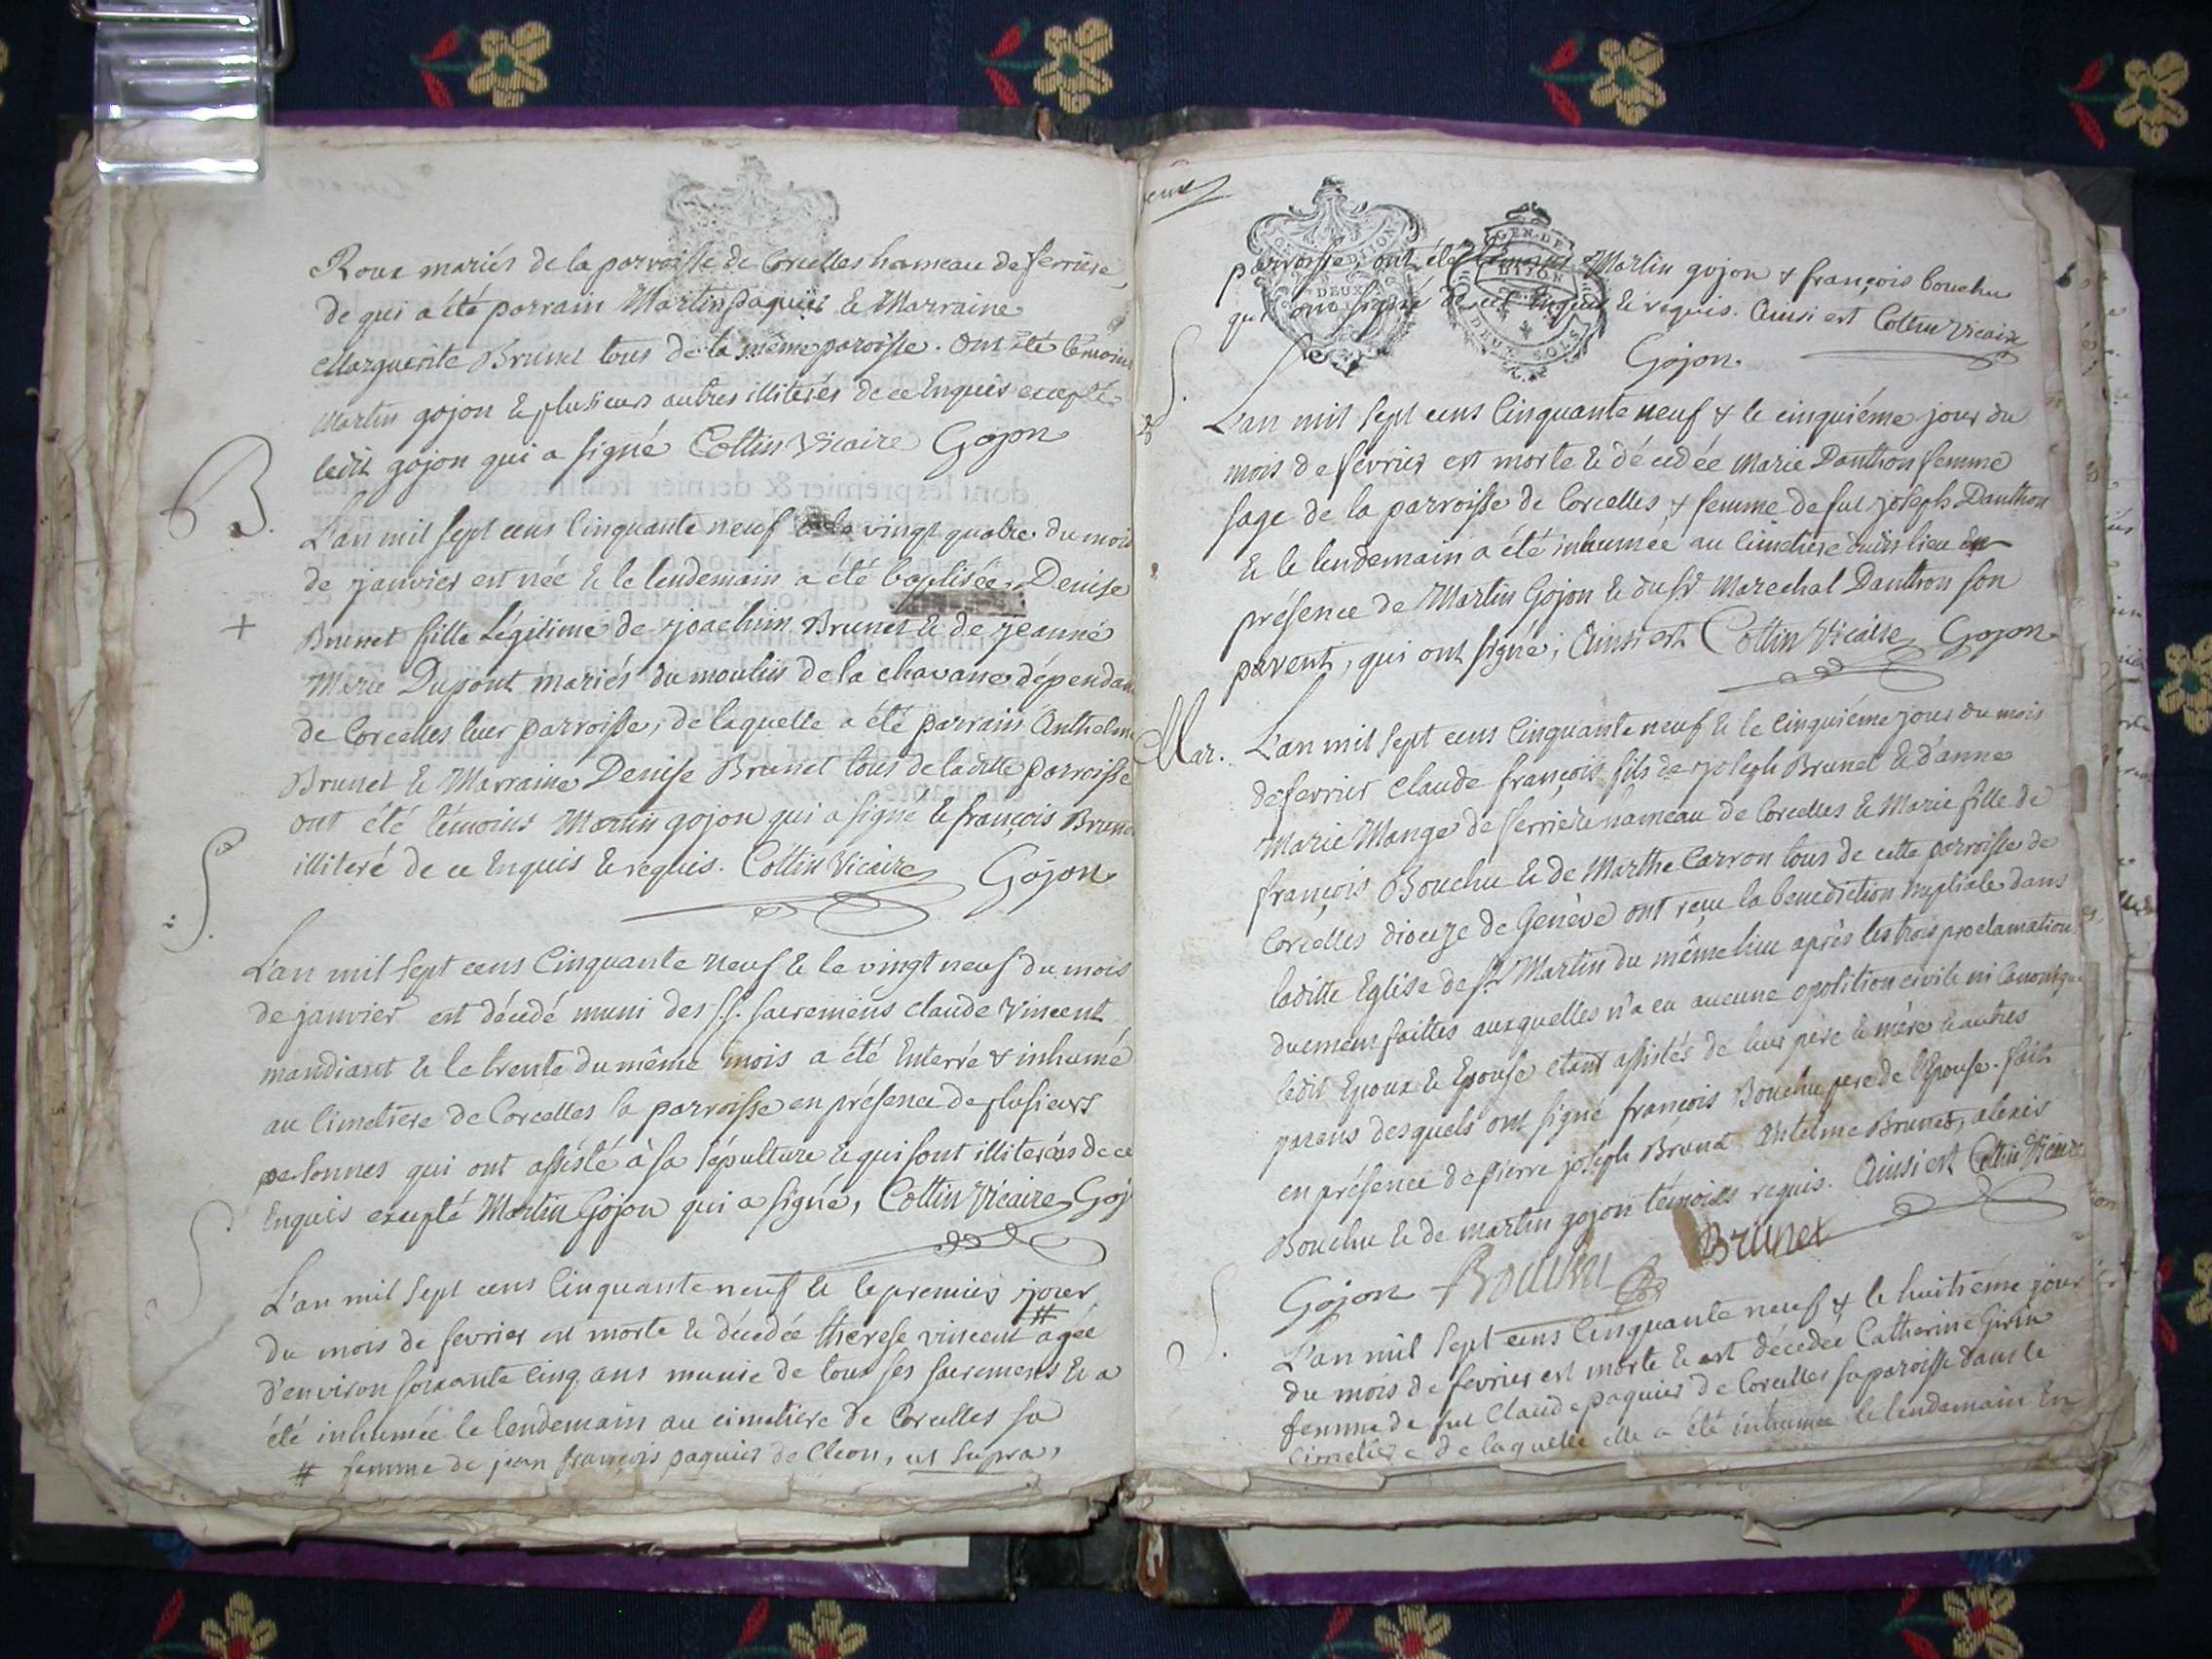 Roux mariés de la parroisse de Corcelles hameau de ferriere
de qui a été parrain Martin paquier & Marraine
Marguerite Brunet tous de la même paroisse. Ont été témoins
Martin gojon & plusieurs autres illiterés de ce Enquis excepté
ledit gojon qui a signé Cottin Vicaire Gojon
B.
L'an mil sept cens Cinquante neuf vingt quatre du mois
de janvier est née & le lendemain a été baptisée Denise
+
Brunet fille Légitime de joachim Brunet & de jeanne
Marie Dupont mariés du moulin de la chavane dépendan
de Corcelles leur parroisse, de laquelle a été parrain Anthelme
Brunet & Marraine Denise Brunet tous de laditte parroisse
ont été témoins Martin gojon qui a signé & françois Brunet
illiteré de ce Enquis & requis. Cottin Vicaire Gojon
S.
L'an mil sept cens Cinquante neuf & le vingt neuf du mois
de janvier est décedé muni des S.S. sacremens claude Vincent
mandiant & le trente du même mois a été Enterré & inhumé
au Cimetiere de Corcelles sa parroisse en présence de plusieurs
personnes qui ont assisté à sa sépulture & qui sont illiterés de ce
Enquis excepté Martin Gojon qui a signé, Cottin Vicaire Goj
S.
L'an mil sept cens Cinquante neuf & le premier jour
du mois de fevrier est morte & décedée therese vincent # agée
d'environ soixante cinq ans munie de tous ses sacremens & a
été inhumée le lendemain au cimetiere de Corcelles sa
# femme de jean françois paquier de Cleon, ut supra,
parroisse, ont été témoins Martin gojon & françois bouchu
qui ont signé de ce Enquis & requis. Ainsi est Cottin Vicaire
GEN. DE DIJON
DEUX SOLS
Gojon
S.
L'an mil sept cens Cinquante neuf & le cinquiéme jour du
mois de fevrier est morte & décedée Marie Danthon femme
sage de la parroisse de Corcelles, & femme de fut joseph Danthon
& le lendemain a été inhumée au Cimetiere dudit lieu en
présence de Martin Gojon & du Sr Marechal Danthon son
parent, qui ont signé; Ainsi est Cottin Vicaire Gojon
Mar.
L'an mil sept cens Cinquante neuf & le Cinquiéme jour du mois
de fevrier Claude françois fils de joseph Brunet & d'anne
Marie Mange de ferriere hameau de Corcelles & Marie fille de
françois Bouchu & de Marthe Carron tous de cette parroisse de
Corcelles dioceze de Genève ont reçu la benediction nuptiale dans
laditte Eglise de St Martin du même lieu après les trois proclamations
duement faittes auxquelles n'a eu aucune opposition civile ni Canonique
ledit Epoux & Epouse etant assistés de leur père & mère & autres
parens desquels ont signé françois Bouchu pere de l'Epouse. fait
en présence de pierre joseph Brunet Antelme Brunet, alexis
Bouchu & de martin gojon témoins requis. Ainsi est Cottin Vicaire
Gojon Bouchu Brunet
S.
L'an mil sept cens Cinquante neuf & le huitiéme jour
du mois de fevrier est morte & est décedée Catherine Girin
femme de fut Claude paquier de Corcelles sa paroisse dans le
Cimetiere de laquelle elle a été inhumée le lendemain En